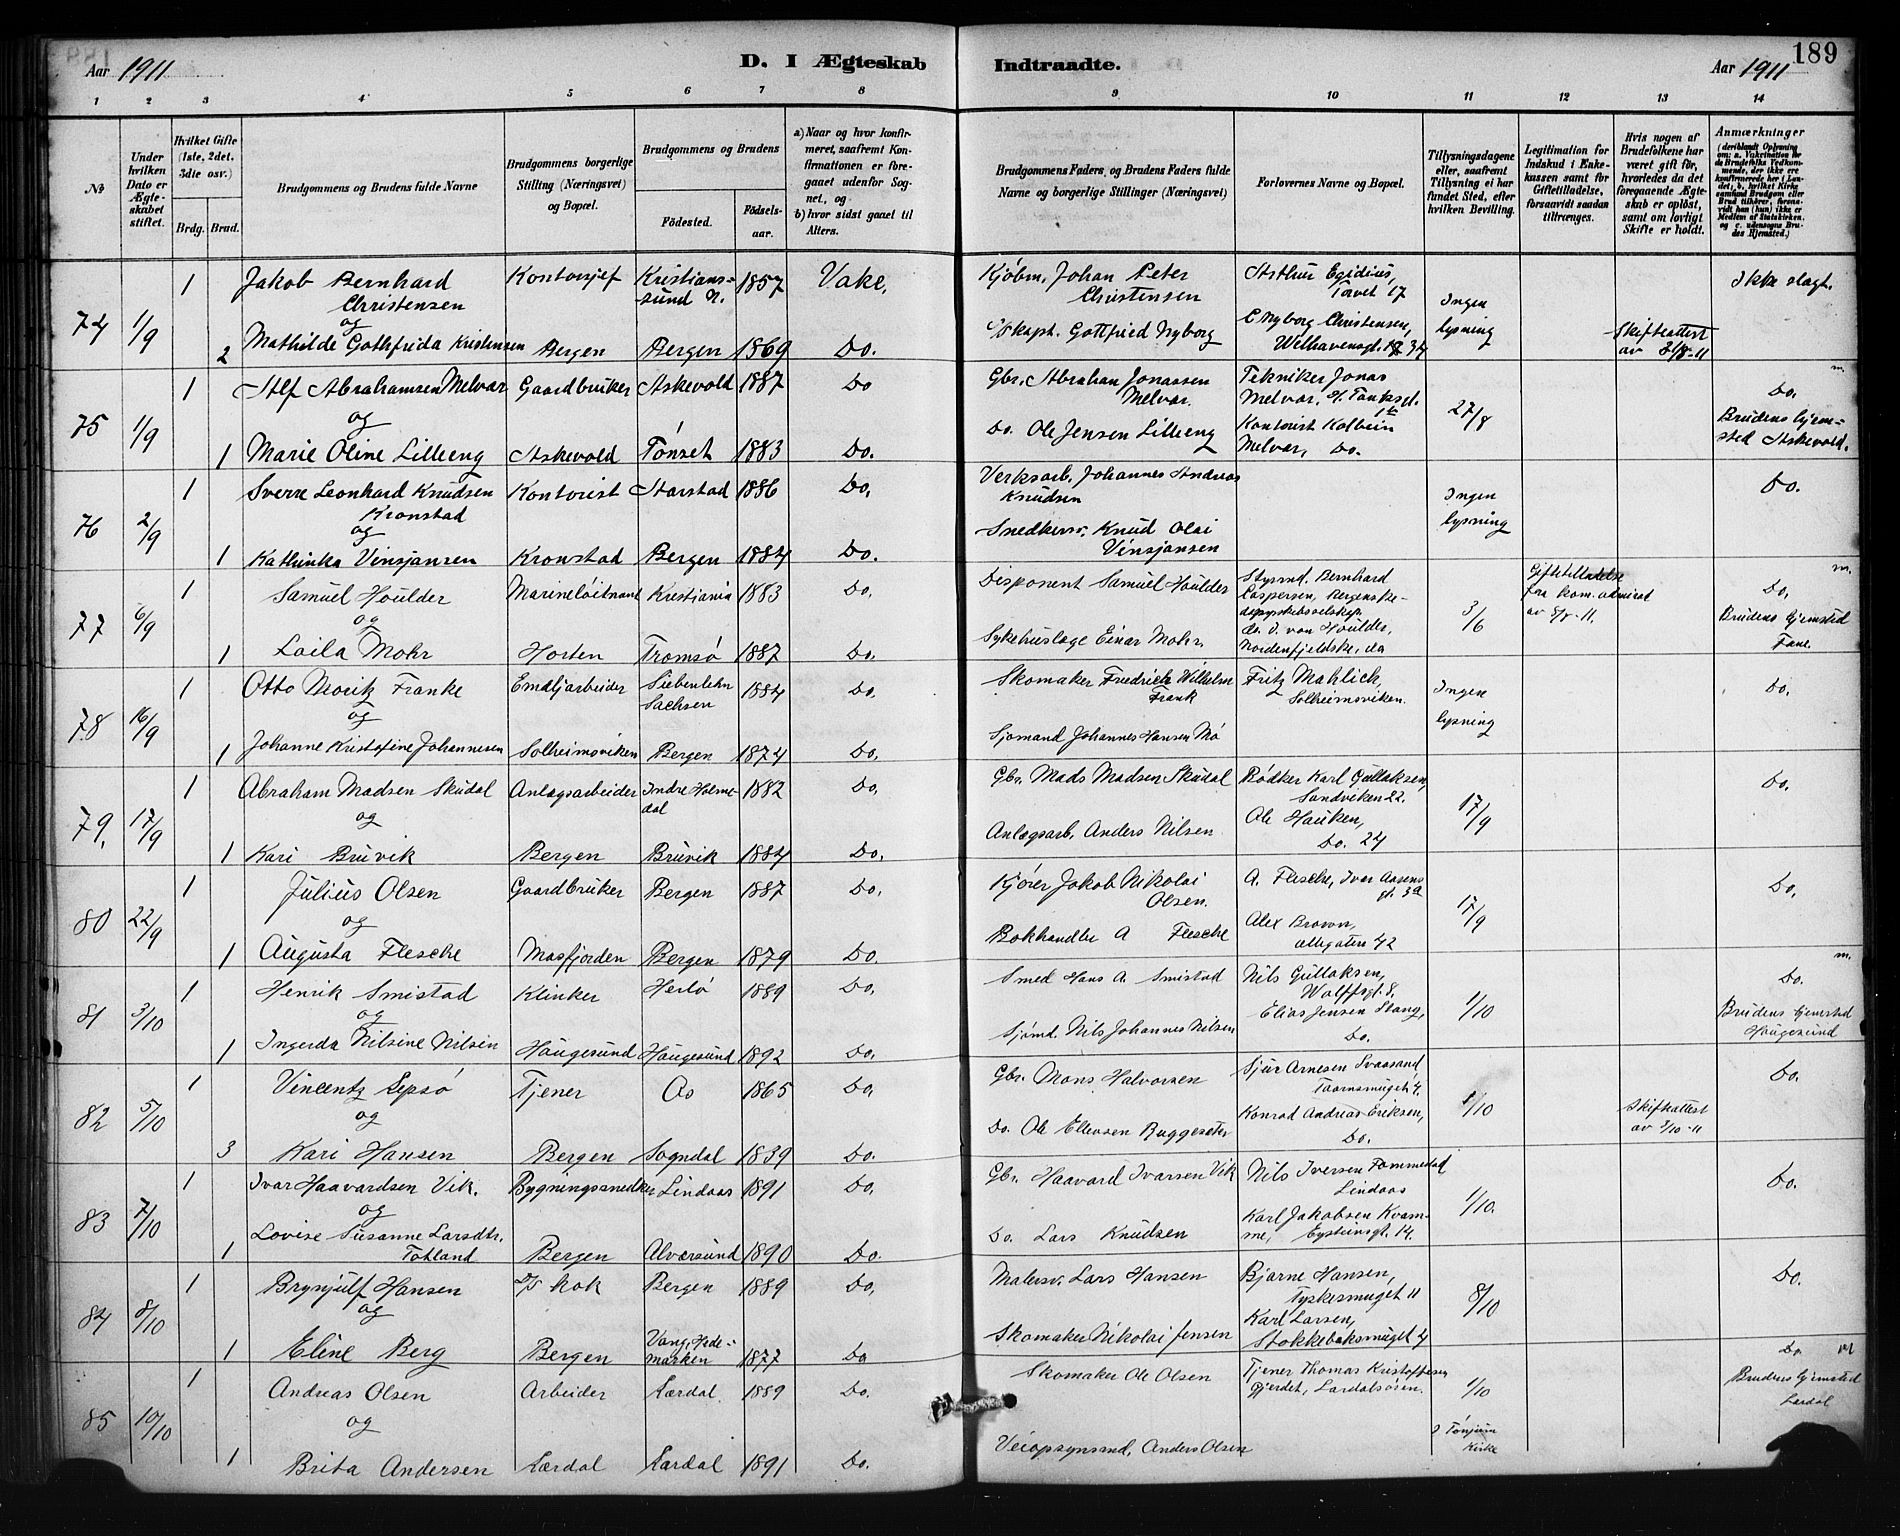 189
Aar 1911
D. I Ægteskab Indtraadte.
Aar 1911
1 2 3 4 5 6 7 8 9 10 11 12 13 14
No
Under hvilken Dato er Ægteskabet stiftet.
Hvilket Gifte (1ste, 2det, 3die osv.)
Brdg. Brud.
Brudgommens og Brudens fulde Navne
Brudgommens borgerlige Stilling (Næringsvei) og Bopæl.
Brudgommens og Brudens
Fødested. Fødselsaar.
a) Naar og hvor konfirmeret, saafremt Konfirmationen er foregaaet udenfor Sognet, og
b) hvor sidst gaaet til Alters.
Brudgommens Faders, og Brudens Faders fulde Navne og borgerlige Stillinger (Næringsvei)
Forlovernes Navne og Bopæl.
Tillysningsdagene eller, saafremt Tillysning ei har fundet Sted, efter hvilken Bevilling.
Legitimation for Indskud i Enkekassen samt for Giftetilladelse, forsaavidt saadan tiltrænges.
Hvis nogen af Brudefolkene har været gift før, hvorledes da det foregaaende Ægteskab er opløst, samt om lovligt Skifte er holdt.
Anmærkninger
74 1/9 1 Jakob Bernhard Christensen Kontorsjef Kristianssund N. 1857 Vake, Kjøbm. Johan Peter Christensen Arthur Egidius, Torvet 17 Ingen lysning Ikke slægt.
og
2 Mathilde Gothfrida Kristensen Bergen Bergen 1869 Do. Skapt. Gottfried Nyborg E Nyborg Christensen, Welhavensgt. 34 Skifteattest av
75 1/9 1 Alf Abrahamsen Melvær Gaardbruker Askevold 1887 Do Gbr. Abraham Jonassen Melvær. Tekniker Jonas Melvær, H. Tanksgt. 27/8 Do. m.
og
1 Marie Oline Lilleeng Askevold Tønset 1883 Do. Do. Ole Jensen Lilleeng Kontorist Kolbein Melvær, Do. Brudens hjemsted Askevold.
76 2/9 1 Sverre Leonhard Knudsen Kronstad Kontorist Aarstad 1886 Do. Verksarb. Johannes Andreas Knudsen Ingen lysning Do.
og
1 Kathinka Vinsjansen Kronstad Bergen 1884 Do. Snedkersv. Knud Olai Vinsjansen
77 6/9 1 Samuel Houlder Marineløitnant Kristiania 1883 Do. Disponent Samuel Houlder Styrmd. Bernhard Caspersen, Bergenske 3/6 Giftetilladelse fra kom. admiral av Do. m.
og
1 Laila Mohr Horten Tromsø 1887 Do. Sykehuslæge Einar Mohr. J. von Houlder, Nordenfjeldske, da Brudens hjemsted Fane.
78 16/9 1 Otto Moritz Franke Emaljarbeider Siebenlehn Sachsen 1884 Do. Skomaker Friedrich Wilhelm Frank Fritz Mahlich, Solheimsviken. Ingen lysning Do.
og
1 Johanne Kristofine Johannesen Solheimsviken Bergen 1874 Do. Sjømand Johannes Hansen Mo
79. 17/9 1 Abraham Madsen Skudal Anlægsarbeider Indre Holmedal 1882 Do. Gbr. Mads Madsen Skudal Bødker Karl Gullaksen, Sandviken 22. 17/9 Do.
og
1 Kari Bruvik Bergen Bruvik 1884 Do. Anlægsarb. Anders Nilsen Ole Hauken, Do. 24
80 22/9 1 Julius Olsen Gaardbruker Bergen 1887 Do. Kjører Jakob Nikolai Olsen. A. Flesche, Ivar Aasens gt. 3a 17/9 Do.
og
1 Augusta Flesche Masfjorden Bergen 1879 Do. Bokhandler A Flesche Alex Brown, Allegaten 42
81 3/10 1 Henrik Smistad Klinker Herlø 1889 Do. Smed Hans A. Smistad Nils Gullaksen, Wolffsgt. 8. 1/10 Do. m.
og
1 Ingerda Nilsine Nilsen Haugesund Haugesund 1892 Do. Sjømd. Nils Johannes Nilsen Elias Jensen Stang, Do. Brudens hjemsted Haugesund
82 5/10 1 Vincentz Lepsø Tjener Os 1865 Do. Gbr. Mons Halvorsen Sjur Arnesen Svaasand Taarnsmuget 4. 1/10 Do.
og
3 Kari Hansen Bergen Sogndal 1839 Do. Do. Ole Ellevsen Ruggesæter Konrad Andreas Eriksen, Do. Skifteattest av 3/10-11
83 7/10 1 Ivar Haavardsen Vik. Bygningssnedker Lindaas 1891 Do. Gbr. Haavard Ivarsen Vik Nils Iversen Fammestad Lindaas 1/10. Do.
og
1 Lovise Susanne Larsdtr. Totland Bergen Alversund 1890 Do. Do. Lars Knudsen Karl Jakobsen Kvamme, Eysteinsgt. 14.
84 8/10 1 Brynjulf Hansen D/S kok Bergen 1889 Do. Malersv. Lars Hansen Bjarne Hansen, Tyskesmuget 11 8/10 Do.
og
1 Eline Berg Bergen Vang, Hedemarken 1877 Do Skomaker Nikolai Jensen Karl Larsen, Stokkebaksmuget 4
85 10/10 1 Andreas Olsen Arbeider Lærdal 1889 Do. Skomaker Ole Olsen Tjener Thomas Kristoffersen Gjerdet, Lærdalsøren. 1/10 Do. m
og
1 Brita Andersen Lærdal Lærdal 1891 Do. Veiopsynsmd. Anders Olsen I Tønjum Kirke Brudens hjemsted Lærdal